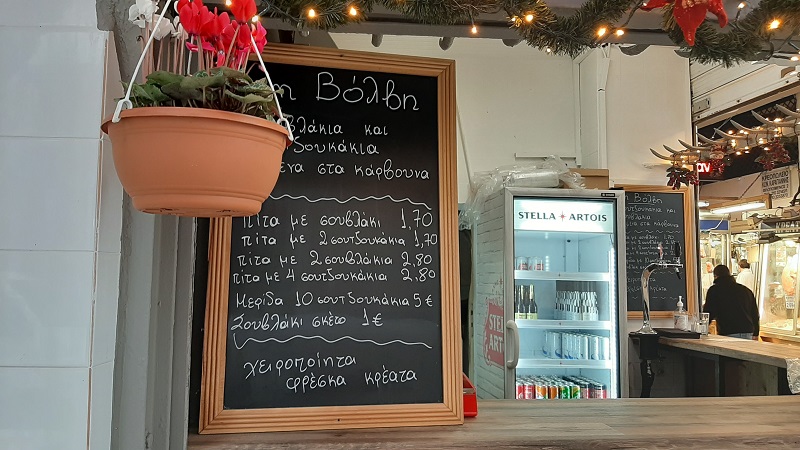 Βόλβη
και
στα κάρβουνα
πίτα με σουβλάκι 1,70
πίτα με 2 σουτζουκάκια 1,70
πίτα με 2 σουβλάκια 2,80
πίτα με 4 σουτζουκάκια 2,80
Μερίδα 10 σουτζουκάκια 5€
Σουβλάκι σκέτο 1€
χειροποίητα
φρέσκα κρέατα
STELLA ARTOIS
STELLA
ARTOIS
Βόλβη